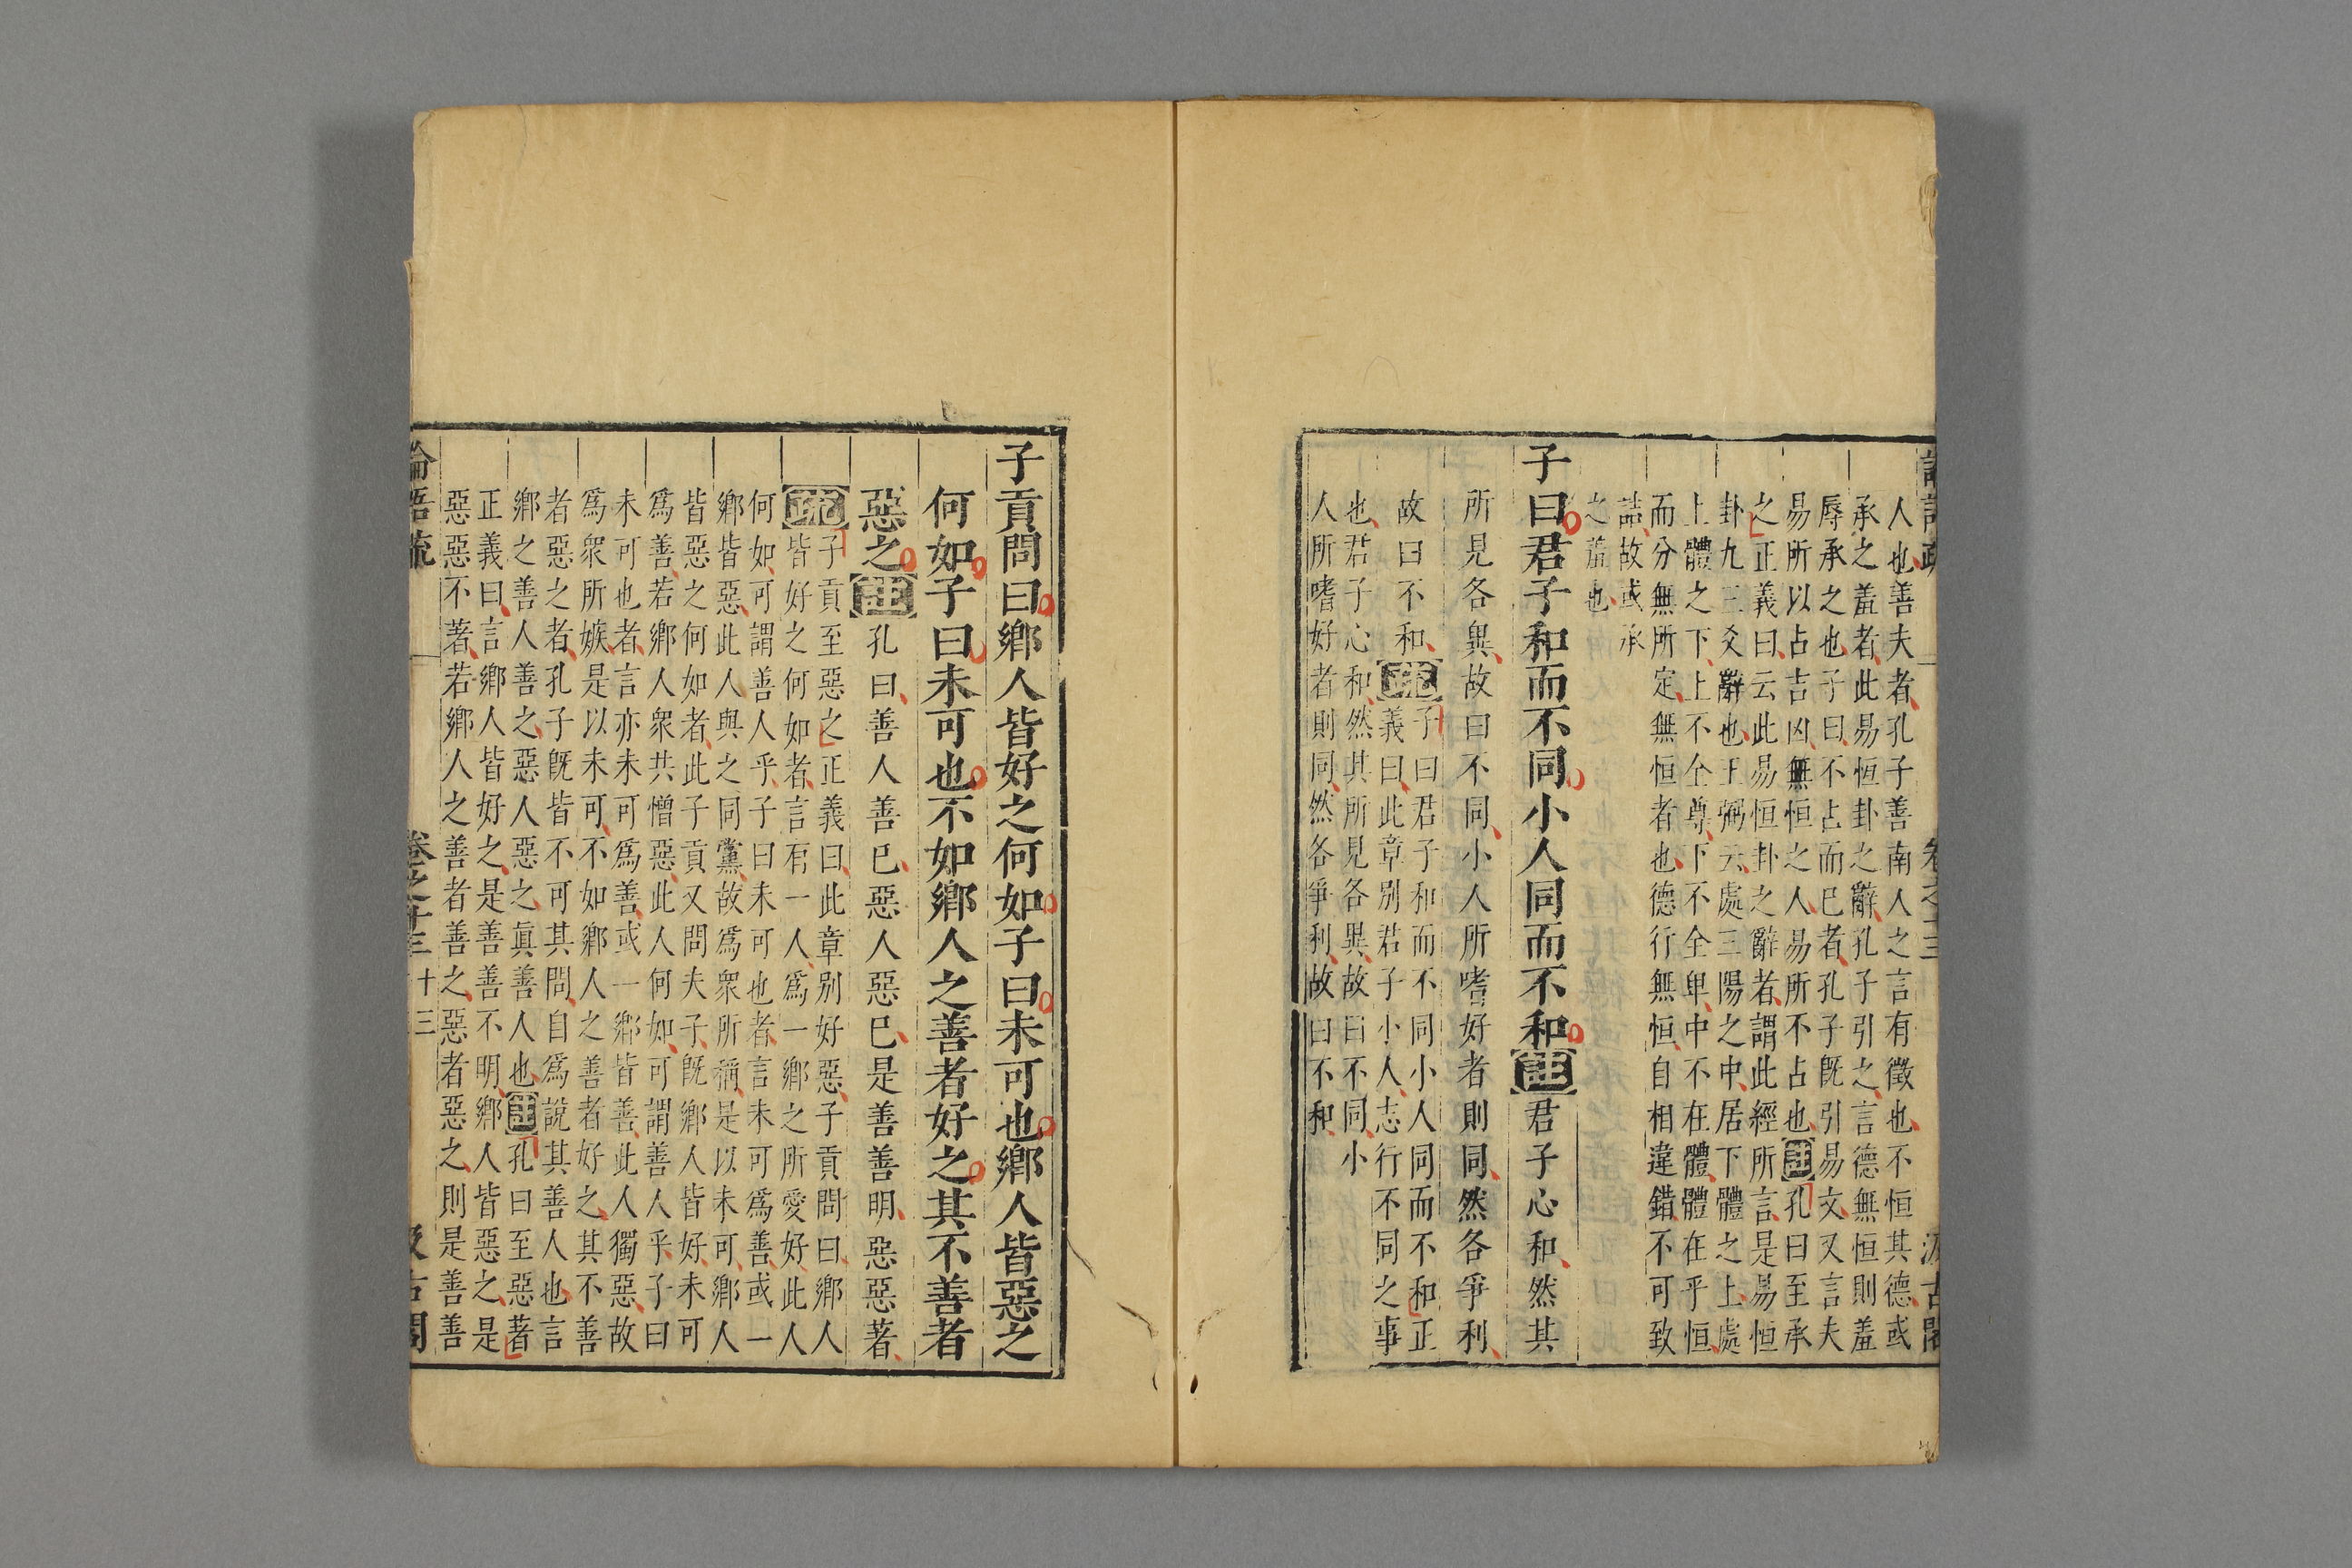 人也善夫者孔子善南人之言有徵也不恒其德或
承之羞者此易恒卦之辭孔子引之言德無恒則羞
辱承之也子曰不占而已者孔子既引易文又言夫
易所以占吉凶無恒之人易所不占也註孔曰至承
之正義曰云此易恒卦之辭者謂此經所言是易恒
卦九三爻辭也王弼云處三陽之中居下體之上處
上體之下上不全尊下不全卑中不在體體在乎恒
而分無所定無恒者也德行無恒自相違錯不可致
詰故或承
之羞也
子曰君子和而不同小人同而不和註君子心和然其
所見各異故曰不同小人所嗜好者則同然各爭利
故曰不和疏子曰君子和而不同小人同而不和正
義曰此章別君子小人志行不同之事
也君子心和然其所見各異故曰不同小
人所嗜好者則同然各爭利故曰不和
子貢問曰鄉人皆好之何如子曰未可也鄉人皆惡之
何如子曰未可也不如鄉人之善者好之其不善者
惡之註孔曰善人善已惡人惡已是善善明惡惡著
疏子貢至惡之正義曰此章別好惡子貢問曰鄉人
皆好之何如者言有一人為一鄉之所愛好此人
何如可謂善人乎子曰未可也者言未可為善或一
鄉皆惡此人與之同黨故為衆所稱是以未可鄉人
皆惡之何如者此子貢又問夫子既鄉人皆好未可
為善若鄉人衆共憎惡此人何如可謂善人乎子曰
未可也者言亦未可為善或一鄉皆善此人獨惡故
為衆所嫉是以未可不如鄉人之善者好之其不善
者惡之者孔子既皆不可其問自為說其善人也言
鄉之善人善之惡人惡之真善人也註孔曰至惡著
正義曰言鄉人皆好之是善善不明鄉人皆惡之是
惡惡不著若鄉人之善者善之惡者惡之則是善善
論語疏 卷之十三 十三 汲古閣